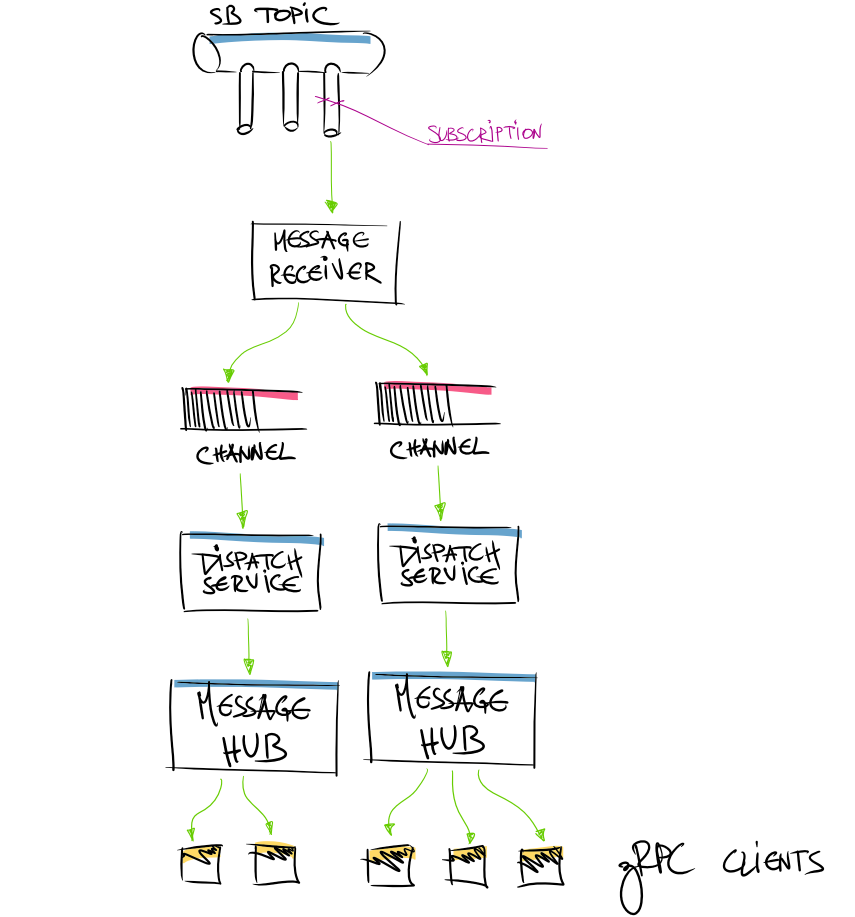 SB TOPIC
SUBSCRIPTION
MESSAGE
RECEIVER
CHANNEL
CHANNEL
DISPATCH
SERVICE
DISPATCH
SERVICE
MESSAGE
HUB
MESSAGE
HUB
gRPC CLIENTS